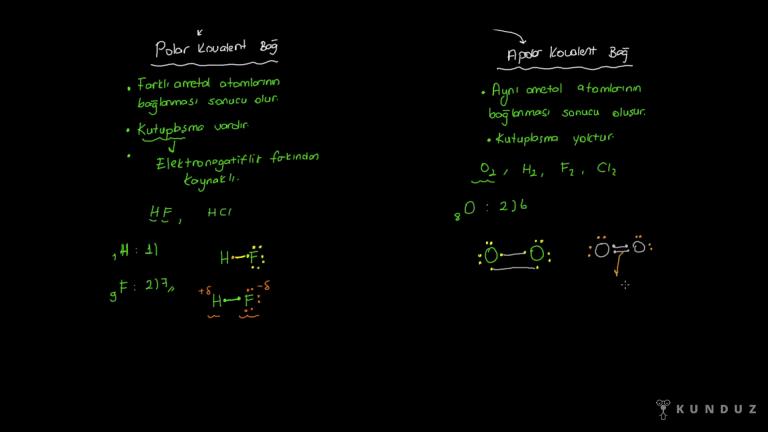 Polar Kovalent Bağ
• Farklı ametal atomlarının
bağlanması sonucu olur.
• Kutuplaşma vardır.
• Elektronegatiflik farkından
kaynaklı.
HF, HCl
₁H : 1)
₉F : 2)7
H F
+δ H F -δ
Apolar Kovalent Bağ
• Aynı ametal atomlarının
bağlanması sonucu oluşur.
• Kutuplaşma yoktur.
O₂, H₂, F₂, Cl₂
₈O : 2)6
O O
O O
KUNDUZ